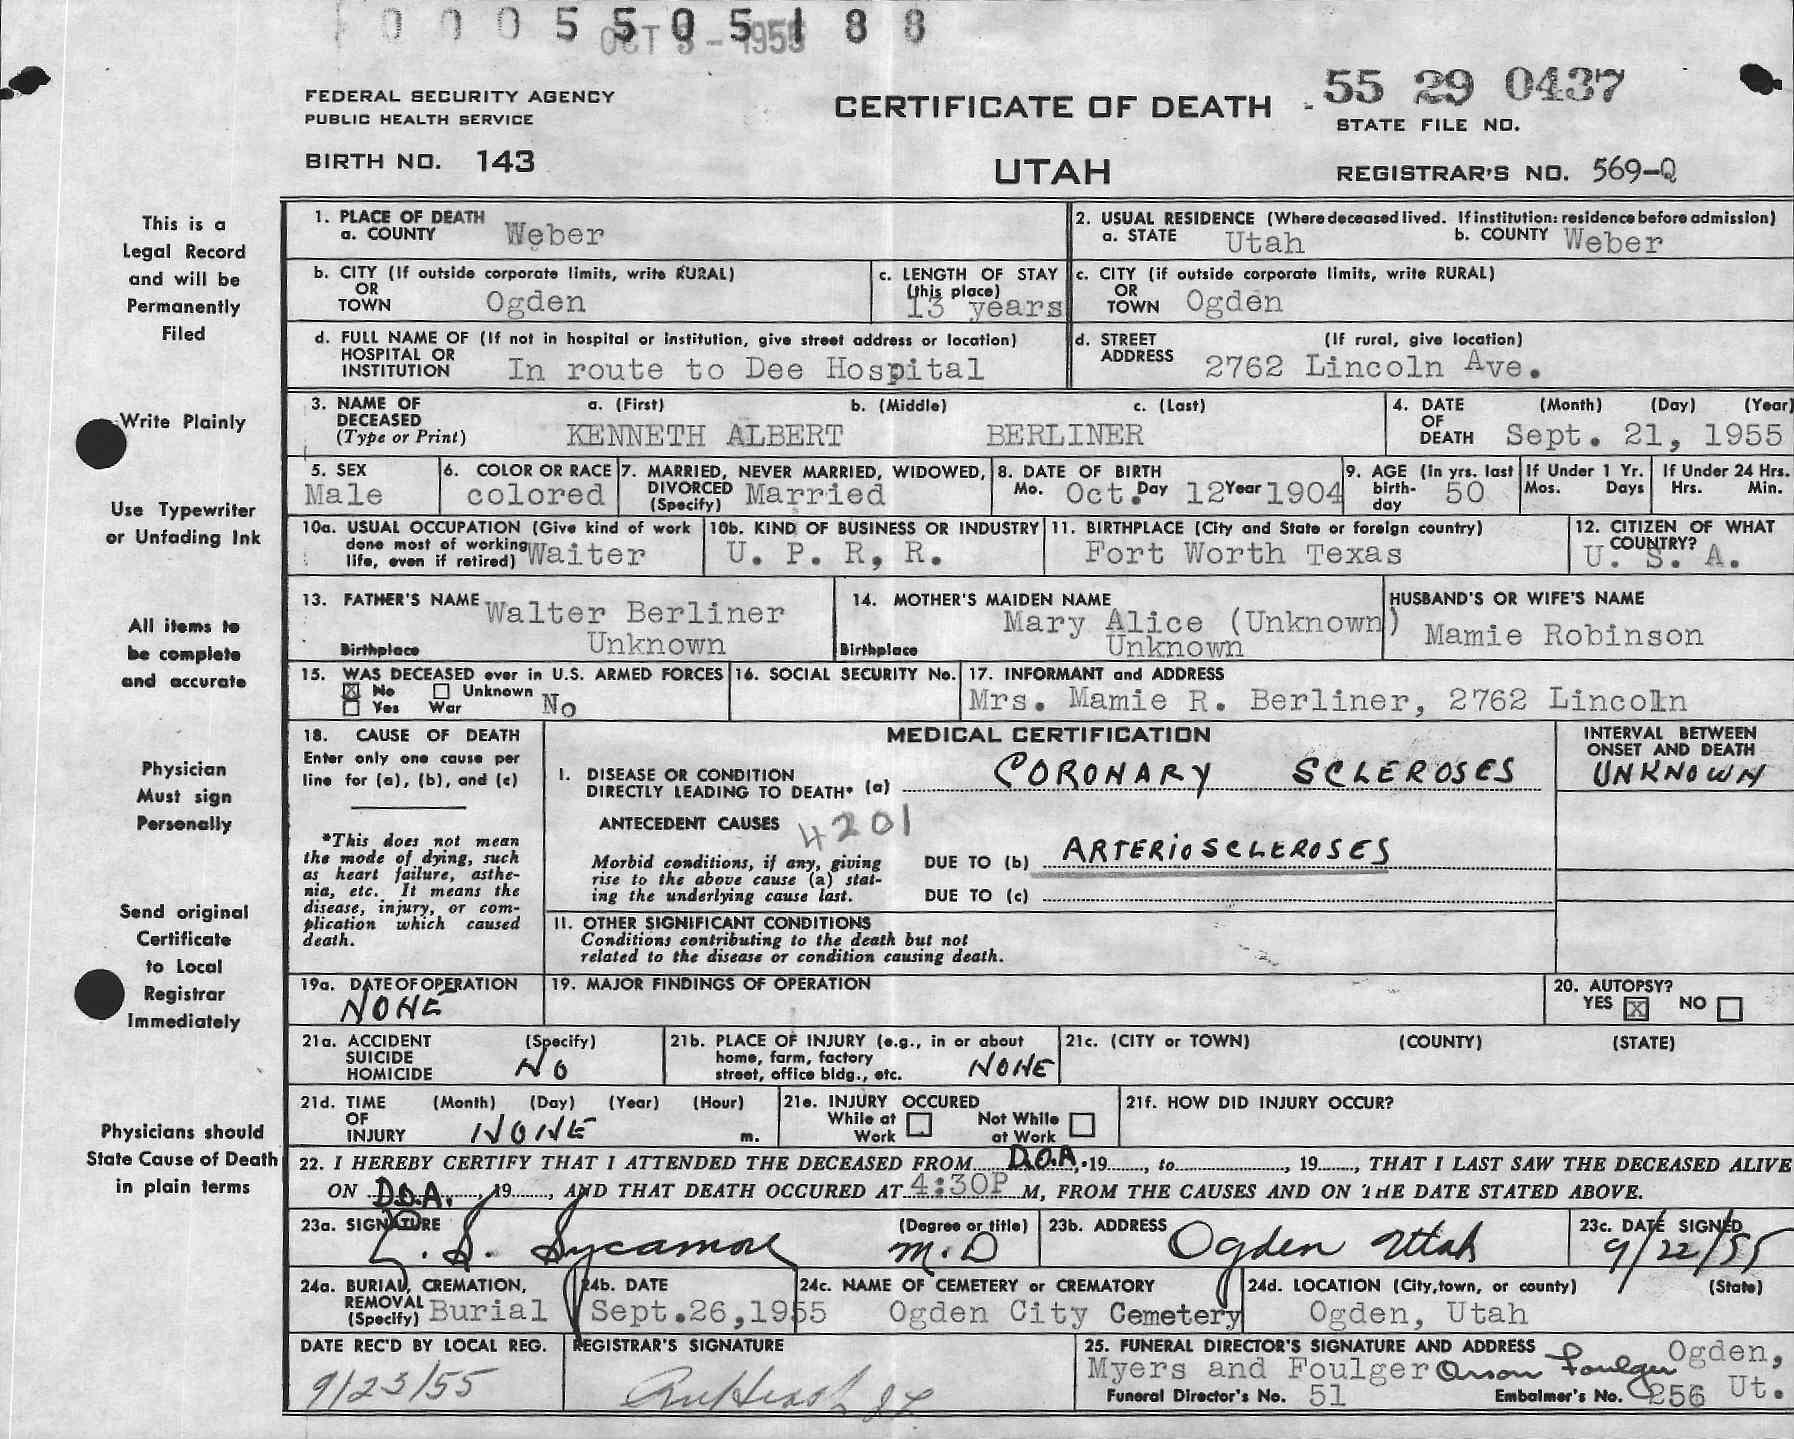 0005505188
OCT 3 - 1955
FEDERAL SECURITY AGENCY
PUBLIC HEALTH SERVICE
BIRTH NO. 143
CERTIFICATE OF DEATH
UTAH
55 29 0437
STATE FILE NO.
REGISTRAR'S NO. 569-Q
This is a
Legal Record
and will be
Permanently
Filed
Write Plainly
Use Typewriter
or Unfading Ink
All items to
be complete
and accurate
Physician
Must sign
Personally
Send original
Certificate
to Local
Registrar
Immediately
Physicians should
State Cause of Death
in plain terms
1. PLACE OF DEATH
a. COUNTY Weber
2. USUAL RESIDENCE (Where deceased lived. If institution: residence before admission)
a. STATE Utah b. COUNTY Weber
b. CITY (If outside corporate limits, write RURAL)
OR
TOWN Ogden
c. LENGTH OF STAY
(this place)
13 years
c. CITY (if outside corporate limits, write RURAL)
OR
TOWN Ogden
d. FULL NAME OF (If not in hospital or institution, give street address or location)
HOSPITAL OR
INSTITUTION In route to Dee Hospital
d. STREET (If rural, give location)
ADDRESS 2762 Lincoln Ave.
3. NAME OF a. (First) b. (Middle) c. (Last)
DECEASED
(Type or Print) KENNETH ALBERT BERLINER
4. DATE (Month) (Day) (Year)
OF
DEATH Sept. 21, 1955
5. SEX
Male
6. COLOR OR RACE
colored
7. MARRIED, NEVER MARRIED, WIDOWED,
DIVORCED Married
(Specify)
8. DATE OF BIRTH
Mo. Oct. Day 12 Year 1904
9. AGE (In yrs. last
birth- 50
day
If Under 1 Yr.
Mos. Days
If Under 24 Hrs.
Hrs. Min.
10a. USUAL OCCUPATION (Give kind of work
done most of working
life, even if retired) Waiter
10b. KIND OF BUSINESS OR INDUSTRY
U. P. R, R.
11. BIRTHPLACE (City and State or foreign country)
Fort Worth Texas
12. CITIZEN OF WHAT
COUNTRY?
U. S. A.
13. FATHER'S NAME Walter Berliner
Birthplace Unknown
14. MOTHER'S MAIDEN NAME
Mary Alice (Unknown)
Birthplace Unknown
HUSBAND'S OR WIFE'S NAME
Mamie Robinson
15. WAS DECEASED ever in U.S. ARMED FORCES
X No Unknown No
Yes War
16. SOCIAL SECURITY No.
17. INFORMANT and ADDRESS
Mrs. Mamie R. Berliner, 2762 Lincoln
18. CAUSE OF DEATH
Enter only one cause per
line for (a), (b), and (c)
*This does not mean
the mode of dying, such
as heart failure, asthe-
nia, etc. It means the
disease, injury, or com-
plication which caused
death.
MEDICAL CERTIFICATION
INTERVAL BETWEEN
ONSET AND DEATH
UNKNOWN
I. DISEASE OR CONDITION
DIRECTLY LEADING TO DEATH* (a) CORONARY SCLEROSES
ANTECEDENT CAUSES 4201
Morbid conditions, if any, giving
rise to the above cause (a) stat-
ing the underlying cause last.
DUE TO (b) ARTERIOSCLEROSES
DUE TO (c)
II. OTHER SIGNIFICANT CONDITIONS
Conditions contributing to the death but not
related to the disease or condition causing death.
19a. DATE OF OPERATION
NONE
19. MAJOR FINDINGS OF OPERATION
20. AUTOPSY?
YES X NO
21a. ACCIDENT (Specify)
SUICIDE
HOMICIDE NO
21b. PLACE OF INJURY (e.g., in or about
home, farm, factory
street, office bldg., etc. NONE
21c. (CITY or TOWN) (COUNTY) (STATE)
21d. TIME (Month) (Day) (Year) (Hour)
OF
INJURY NONE m.
21e. INJURY OCCURED
While at Not While
Work at Work
21f. HOW DID INJURY OCCUR?
22. I HEREBY CERTIFY THAT I ATTENDED THE DECEASED FROM D.O.A., 19, to, 19, THAT I LAST SAW THE DECEASED ALIVE
ON D.O.A., 19, AND THAT DEATH OCCURED AT 4:30P M, FROM THE CAUSES AND ON THE DATE STATED ABOVE.
23a. SIGNATURE (Degree or title)
S. Sycamore M.D
23b. ADDRESS
Ogden Utah
23c. DATE SIGNED
9/22/55
24a. BURIAL, CREMATION,
REMOVAL
(Specify) Burial
24b. DATE
Sept.26,1955
24c. NAME OF CEMETERY or CREMATORY
Ogden City Cemetery
24d. LOCATION (City, town, or county) (State)
Ogden, Utah
DATE REC'D BY LOCAL REG.
9/23/55
REGISTRAR'S SIGNATURE
25. FUNERAL DIRECTOR'S SIGNATURE AND ADDRESS Ogden,
Myers and Foulger Orson Foulger Ut.
Funeral Director's No. 51 Embalmer's No. 256